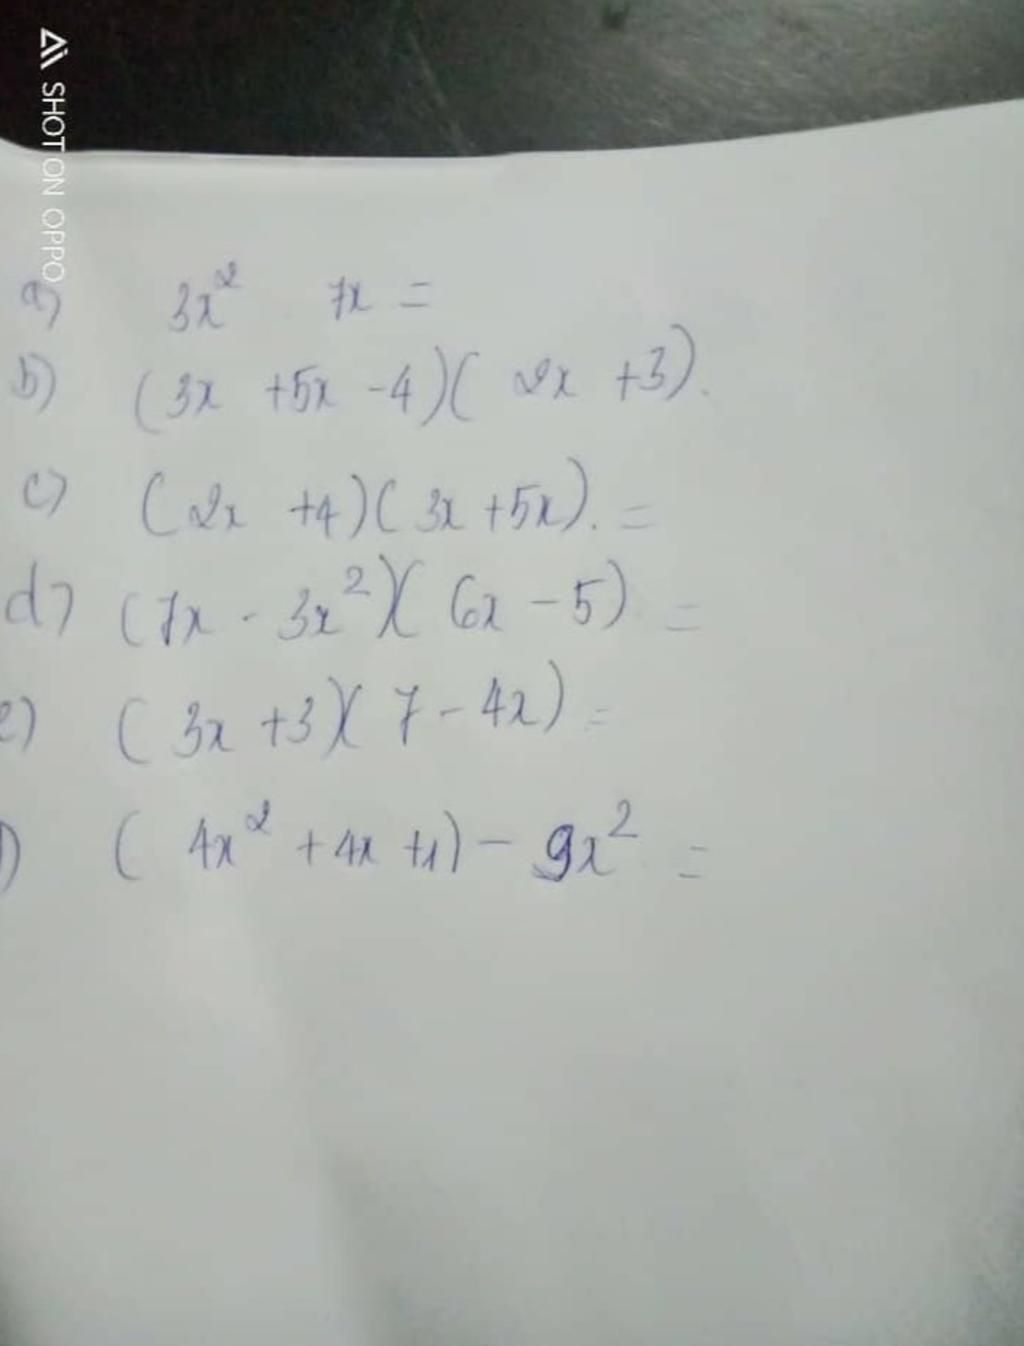 SHOT ON OPPO
a) 3x² 7x =
b) (3x +5x -4)(2x +3).
c) (2x +4)(3x +5x). =
d) (7x - 3x²)(6x - 5) =
e) (3x +3)(7 - 4x) =
(4x² + 4x +1) - 9x² =